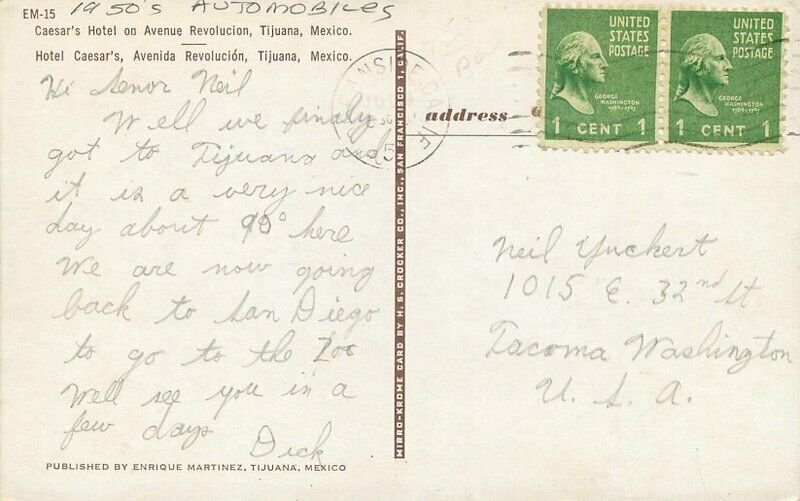 1950's AUTOMOBILES
EM-15
Caesar's Hotel on Avenue Revolucion, Tijuana, Mexico.
Hotel Caesar's, Avenida Revolución, Tijuana, Mexico.
Hi Senor Neil
Well we finaly
got to Tijuana and
it is a very nice
day about 90° here
We are now going
back to San Diego
to go to the Zoo
Well see you in a
few days
Dick
PUBLISHED BY ENRIQUE MARTINEZ, TIJUANA, MEXICO
MIRRO-KROME CARD BY H. S. CROCKER CO., INC., SAN FRANCISCO 1, CALIF.
OCEANSIDE, CALIF
address
UNITED
STATES
POSTAGE
GEORGE
WASHINGTON
1789-1797
1 CENT 1
UNITED
STATES
POSTAGE
GEORGE
WASHINGTON
1789-1797
1 CENT 1
Neil Yuckert
1015 E. 32nd St
Tacoma Washington
U. S. A.